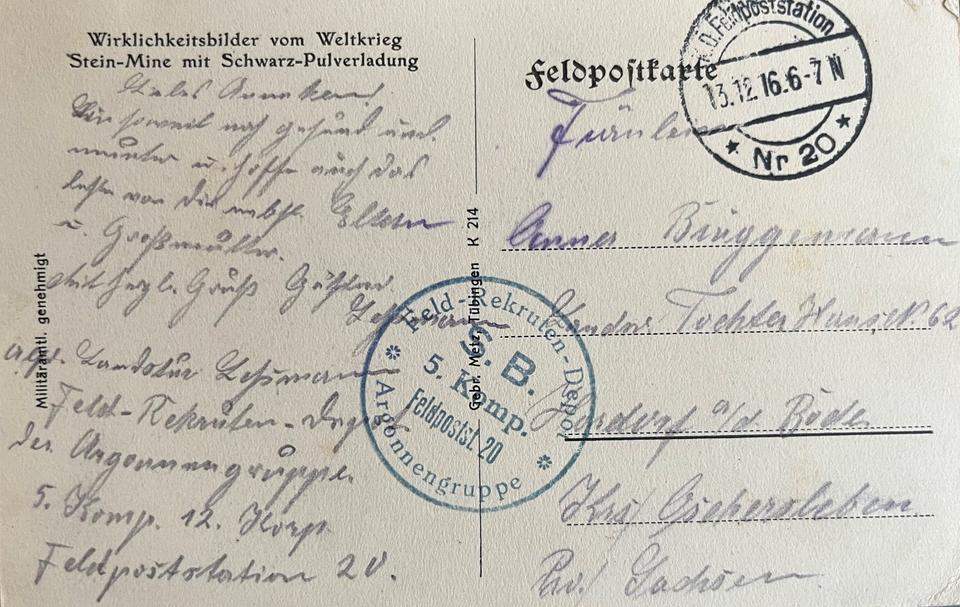 Wirklichkeitsbilder vom Weltkrieg
Stein-Mine mit Schwarz-Pulverladung
Liebes
Bin soweit noch gesund und
munter u. hoffe auch das
von Dir nebst Eltern
u. Großmutter.
Mit herzl. Gruß
Lehmann
Abs. Landstur Lehmann
Feld-Rekruten-Depot
der Argonnengruppe
5. Komp. 12. Korp.
Feldpoststation 20.
Militäramtl. genehmigt
Gebr. Metz, Tübingen K 214
Feldpostkarte
K.D. Feldpoststation
13.12.16. 6-7 N
Nr 20
Fräulein
Anna Brüggemann
Tochter Haus N. 62
a/d. Bode
Krs/ Oschersleben
Prv/ Sachsen
Feld-Rekruten-Depot
S. B.
5. Komp.
Feldpostst. 20
Argonnengruppe